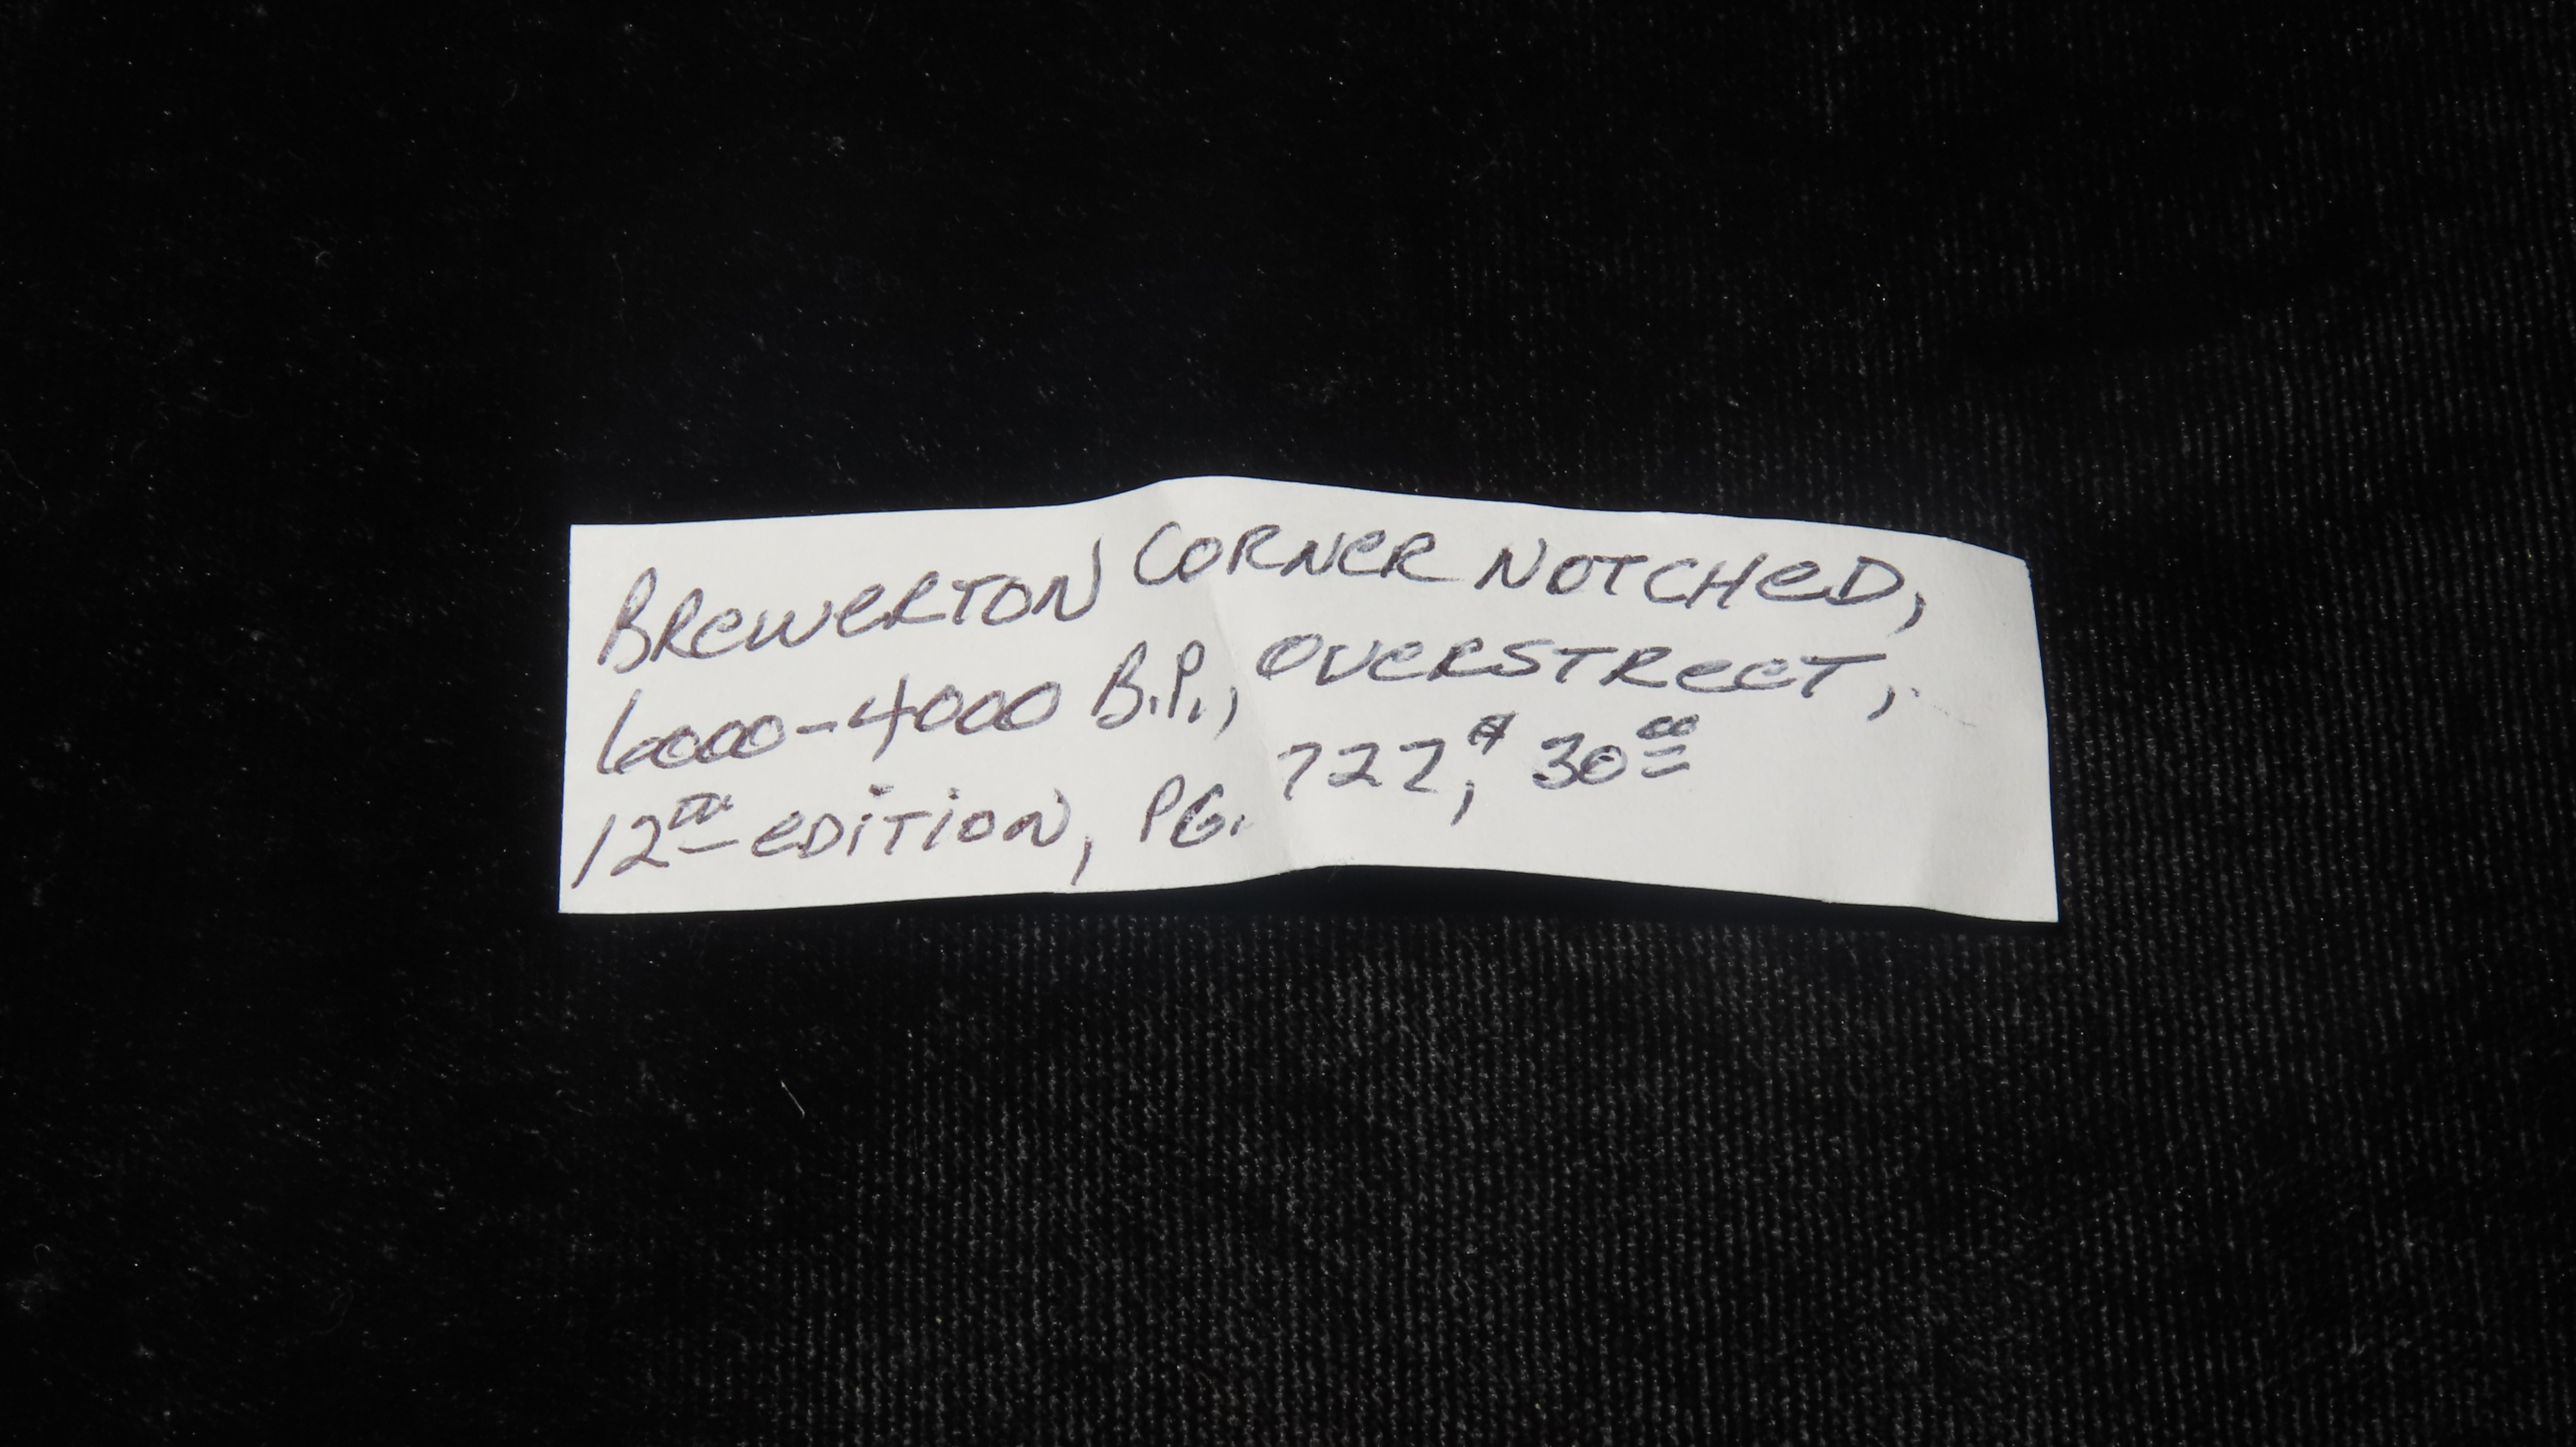 BREWERTON CORNER NOTCHED,
6000-4000 B.P., OVERSTREET,
12TH EDITION, PG. 727, $30.00